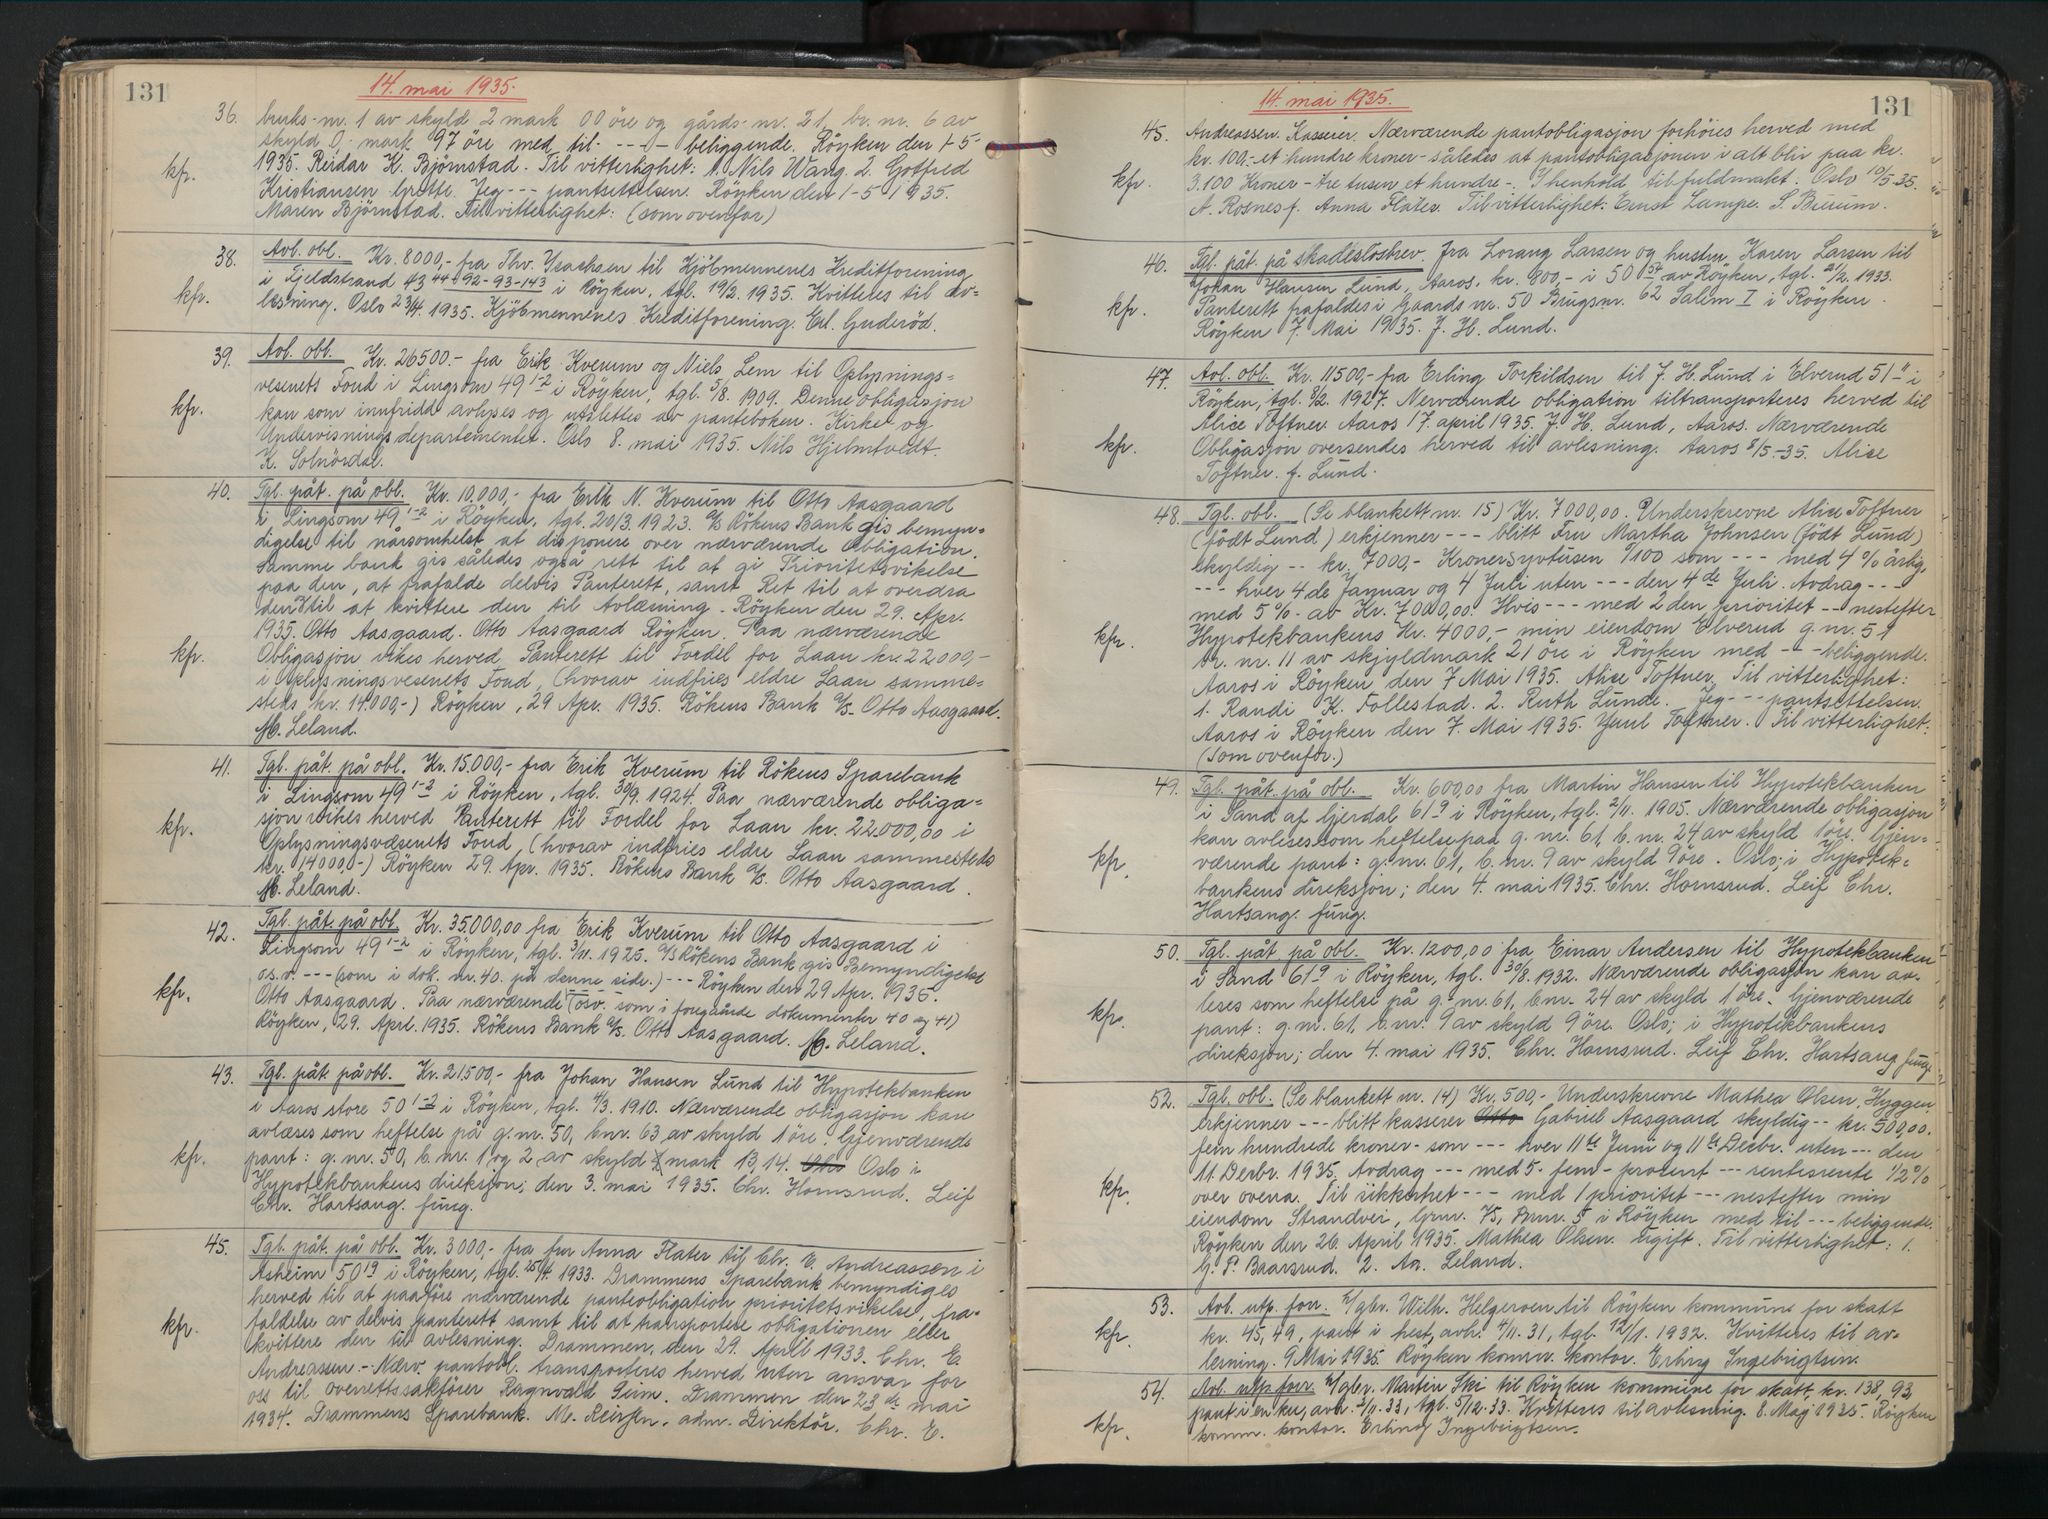 131
14. mai 1935.
36. bruks-nr. 1 av skyld 2 mark 00 öre og gårds-nr. 21, br. nr. 6 av
skyld 0,- mark 97 öre med til- --- - beliggende. Röyken den 1-5-
kfr. 1935. Reidar K. Björnstad. Til vitterlighet: 1. Nils Wang. 2. Gotfred
Kristiansen Grette. Jeg --- pantsettelsen. Röyken den 1-5 1935.
Maren Björnstad. Til vitterlighet: (som ovenfor)
38. Avl. obl. Kr. 8000,- fra Thv. Ysachsen til Kjöbmennenes Kreditforening
i Fjeldstrand 43 44-92-93-143 i Röyken, tgl. 19/2. 1935. Kvitteres til av=
kfr. lesning. Oslo 23/4. 1935. Kjöbmennenes Kreditforening. Erl. Guderöd.
39. Avl. obl. Kr. 26500.- fra Erik Kverum og Niels Lem til Oplysnings=
vesenets Fond i Lingsom 49 1-2 i Röyken, tgl. 5/8. 1909. Denne obligasjon
kfr. kan som innfridd avlyses og utslettes av panteboken. Kirke og
Undervisningsdepartementet. Oslo 8. mai 1935. Nils Hjelmtveit.
K. Solnördal.
40. Tgl. påt. på obl. Kr. 10.000,- fra Erik N. Kverum til Otto Aasgaard
i Lingsom 49 1-2 i Röyken, tgl. 20/3. 1923. A/S Rökens Bank gis bemyn=
digelse til nårsomhelst at disponere over nærværende Obligation.
Samme bank gis således også rett til at gi Prioritetsvikelse
paa den, at frafalde delvis Panterett, samt Ret til at overdra
den til at kvittere den til Avlæsning. Röyken den 29. Apr.
1935. Otto Aasgaard. Otto Aasgaard Röyken. Paa nærværende
kfr. Obligasjon vikes herved Panterett til Fordel for Laan kr. 22000,-
i Oplysningsvesenets Fond, (hvorav indfries eldre Laan samme=
steds kr. 14.000,-) Röyken, 29 Apr. 1935. Rökens Bank A/S. Otto Aasgaard.
M. Leland.
41. Tgl. påt. på obl. Kr. 15.000,- fra Erik Kverum til Rökens Sparebank
i Lingsom 49 1-2 i Röyken, tgl. 30/9. 1924. Paa nærværende obliga=
sjon vikes herved Panterett til Fordel for Laan kr. 22.000,00 i
kfr. Oplysningsvæsenets Fond, (hvorav indfries eldre Laan sammesteds
kr. 14000,-) Röyken 29. Apr. 1935. Rökens Bank A/S. Otto Aasgaard.
M. Leland.
42. Tgl. påt. på obl. Kr. 35.000,00 fra Erik Kverum til Otto Aasgaard i
Lingsom 49 1-2 i Röyken, tgl. 3/11. 1925. A/S Rökens Bank gis Bemyndigelse
o.s.v. --- (som i dok. nr. 40. på denne side.) --- Röyken den 29 Apr. 1935.
kfr. Otto Aasgaard. Paa nærværende (osv. som i foregående dokumenter 40 og 41)
Röyken, 29. April. 1935. Rökens Bank A/S. Otto Aasgaard. M. Leland.
43. Tgl. påt. på obl. Kr. 21500,- fra Johan Hansen Lund til Hypotekbanken
i Aaros store 50 1-2 i Röyken, tgl. 4/3. 1910. Nærværende obligasjon kan
avlæses som heftelse på g. nr. 50, bnr. 63 av skyld 1 öre. Gjenværende
kfr. pant: g. nr. 50, b. nr. 1 og 2 av skyld mark 13,14. Oslo i
Hypotekbankens direksjon; den 3. mai 1935. Chr. Hornsrud. Leif
Chr. Hartsang. fung.
45. Tgl. påt. på obl. Kr. 3000,- fra fru Anna Flater til Chr. E. Andreassen i
Asheim 50 19 i Röyken, tgl. 25/4. 1933. Drammens Sparebank bemyndiges
herved til at paaföre nærværende panteobligation prioritetsvikelse, fra=
kfr. faldelse av delvis panterett samt til at transportere obligationen eller
kvittere den til avlesning. Drammen, den 29. April 1933. Chr. E.
Andreassen. - Nærv. pantobl. transporteres herved uten ansvar for
oss til overrettssakförer Ragnvald Grim. Drammen den 23 de mai
1934. Drammens Sparebank. M. Reiersen. adm. Direktör. Chr. E.
131
14. mai 1935.
45. Andreassen. Kasserer. Nærværende pantobligasjon forhöies herved med
kr. 100,- et hundre kroner - således at pantobligasjonen i alt blir paa kr.
kfr. 3.100 Kroner - tre tusen et hundre -. I henhold til fuldmakt. Oslo 10/5-35.
A. Rosnes f. Anna Flater. Til vitterlighet: Ernst Lampe. S. Buerum.
46. Tgl. påt. på skadeslösbrev. fra Lorang Larsen og hustru Karen Larsen til
Johan Hansen Lund, Aaros, kr. 800,- i 50 54 av Röyken, tgl. 2/2. 1933.
kfr. Panterett frafaldes i Gaards nr. 50 Brugsnr. 62 Salem I i Röyken.
Röyken 7. Mai 1935. J. H. Lund.
47. Avl. obl. Kr. 11500,- fra Erling Torkildsen til J. H. Lund i Elverud 51 11 i
Röyken, tgl. 8/2. 1927. Nerværende obligation tiltransporteres herved til
Alice Toftner. Aaros 17. april 1935. J. H. Lund, Aaros. Nærværende
kfr. Obligasjon oversendes herved til avlesning. Aaros 8/5.-35. Alice
Toftner. f. Lund.
48. Tgl. obl. (Se blankett nr. 15) Kr. 7000,00. Underskrevne Alice Toftner
(födt Lund) erkjenner --- blitt Fru Martha Johnsen (födt Lund)
skyldig -- kr. 7000,- Kroner Syvtusen 0/100 som --- med 4 % årlig.
--- hver 4de Januar og 4 Juli uten --- den 4de Juli. Avdrag ---
med 5 % av Kr. 7000,00. Hvis --- med 2den prioritet -- nestefter
kfr. Hypotekbankens Kr. 4000,- min eiendom Elverud g. nr. 51
br. nr. 11 av skjyldmark 21 öre i Röyken med - - - beliggende.
Aaros i Röyken den 7 Mai 1935. Alise Toftner. Til vitterlighet:
1. Randi K. Follestad. 2. Ruth Lunde. Jeg --- pantsettelsen.
Aaros i Röyken den 7. Mai 1935. Toftner. Til vitterlighet:
(som ovenfor.)
49. Tgl. påt. på obl. Kr. 600,00 fra Martin Hansen til Hypotekbanken
i Sand af Gjerdal 61 9 i Röyken, tgl. 2/11. 1905. Nærværende obligasjon
kan avleses som heftelse paa g. nr. 61, b. nr. 24 av skyld 1 öre. Gjen=
kfr. værende pant: g. nr. 61, b. nr. 9 av skyld 9 öre. Oslo; i Hypotek=
bankens direksjon; den 4. mai 1935. Chr. Hornsrud. Leif Chr.
Hartsang. fung.
50. Tgl. påt. på obl. Kr. 1200,00 fra Einar Andersen til Hypotekbanken
i Sand 61 9 i Röyken, tgl. 30/8. 1932. Nærværende obligasjon kan av=
leses som heftelse på g. nr. 61, bnr. 24 av skyld 1 öre. Gjenværende
kfr. pant: g. nr. 61, b. nr. 9 av skyld 9 öre. Oslo; i Hypotekbankens
direksjon; den 4. mai 1935. Chr. Hornsrud. Leif Chr. Hartsang fung.
52. Tgl. obl. (Se blankett nr. 14) Kr. 500,- Underskrevne Mathea Olsen, Hyggen
erkjenner --- blitt kasserer Otto Gabriel Aasgaard skyldig -- kr. 500,00.
fem hundrede kroner - som --- hver 11te Juni og 11te Decbr. uten --- den
11. Decbr. 1935. Avdrag --- med 5 - fem - procent --- rentesrente 1/2 %
kfr. over overa. Til sikkerhet --- med 1 prioritet --- nestefter min
eiendom Strandvei, Grnr. 75, Brnr. 5 i Röyken med til --- beliggende.
Röyken den 26. April 1935. Mathea Olsen. ugift. Til vitterlighet: 1.
G. P. Baarsrud. 2. Leland.
53. Avl. utp. forr. Wilh. Helgeroen til Röyken kommune for skatt
kfr. kr. 45,49, pant i hest, avh. 4/11. 31, tgl. 12/1. 1932. Kvitteres til av=
lesning. 9 Mai 1935. Röyken komm. kontor. Erling Ingebrigtsen.
54. Avl. utp forr. Martin Ski til Röyken kommune for skatt kr. 138,93
kfr. pant i en ku, avh. 2/11. 33, tgl. 5/12. 33. Kvitteres til avlesning. 8. Maj 1935. Röyken
komm. kontor. Erling Ingebrigtsen.